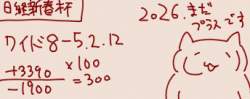 日経新春杯
2026.まだ
プラスです
ワイド8-5.2.12
×100
+3390
=300
-1900